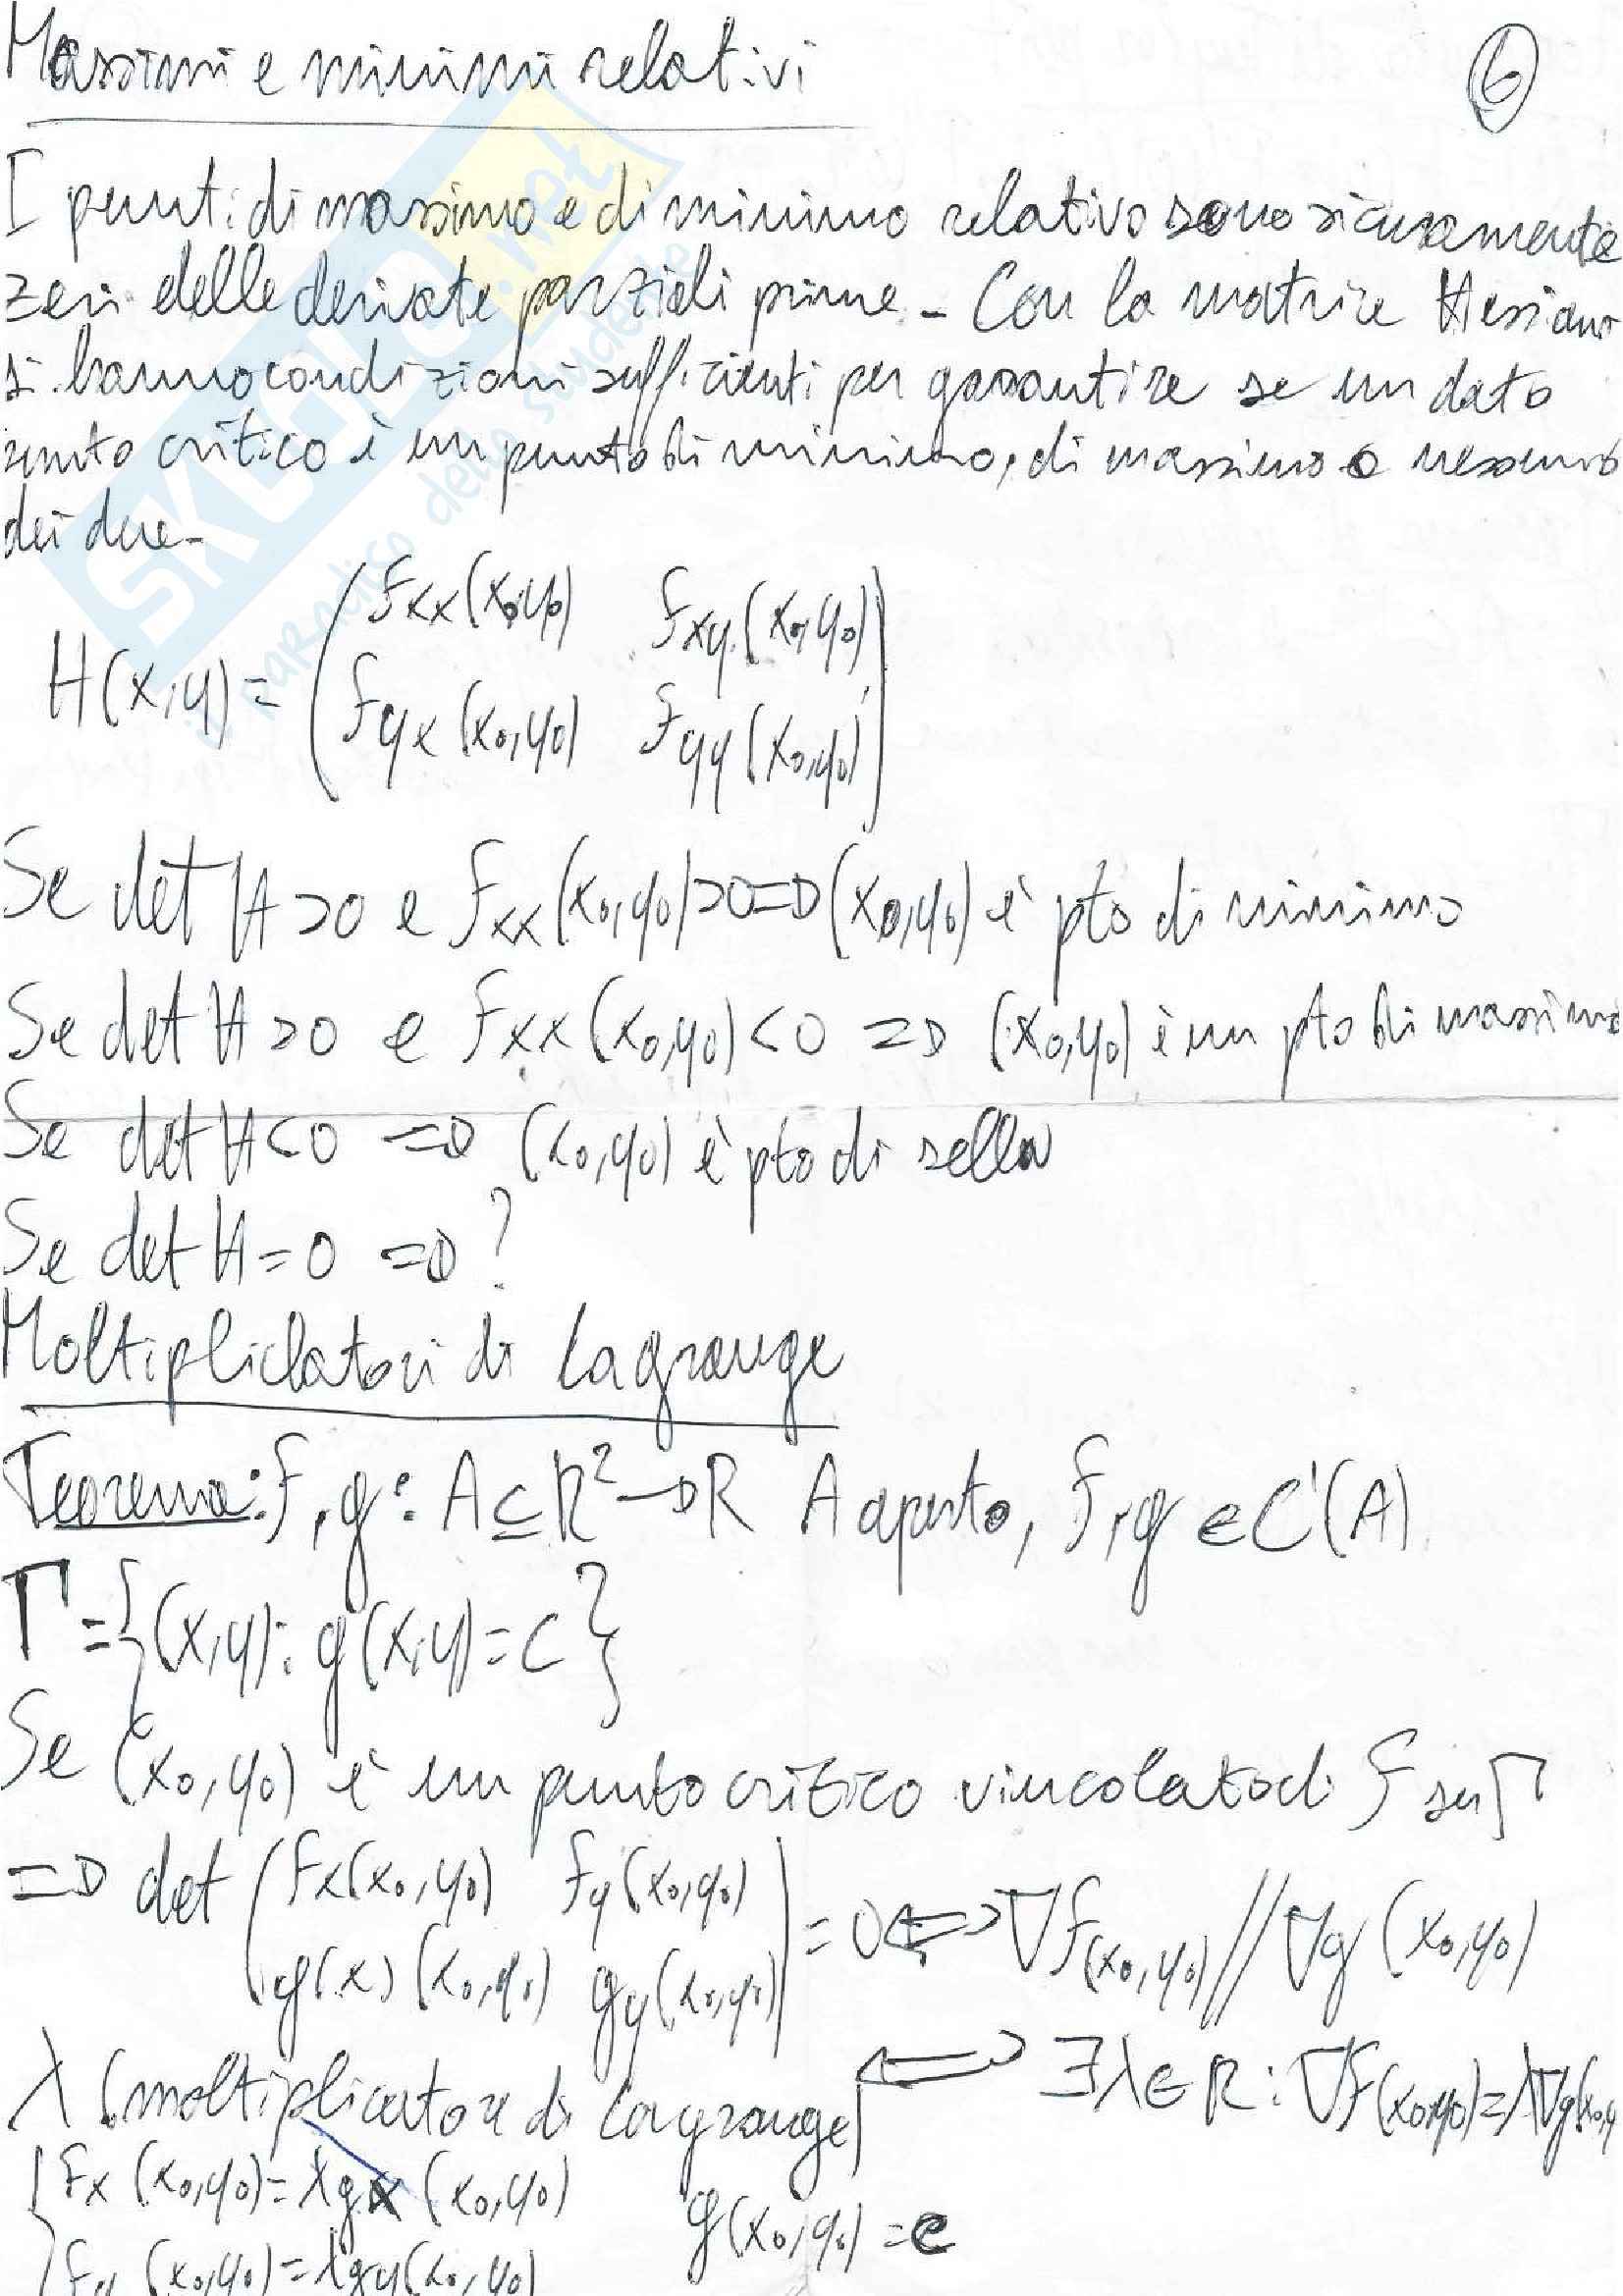 Massimi e minimi relativi
6
I punti di massimo e di minimo relativo sono sicuramente
zeri delle derivate parziali prime - Con la matrice Hessiana
si hanno condizioni sufficienti per garantire se un dato
punto critico è un punto di minimo, di massimo o nessuno
dei due -
H(x,y) = ( fxx(x0,y0) fxy(x0,y0)
fyx(x0,y0) fyy(x0,y0) )
Se det H >0 e fxx(x0,y0)>0 => (x0,y0) è pto di minimo
Se det H >0 e fxx(x0,y0)<0 => (x0,y0) è un pto di massimo
Se det H<0 => (x0,y0) è pto di sella
Se det H=0 => ?
Moltipliclatori di Lagrange
Teorema: f,g: A⊆R² → R A aperto, f,g ∈ C¹(A)
Γ = {(x,y): g(x,y)=C}
Se (x0,y0) è un punto critico vincolato di f su Γ
=> det ( fx(x0,y0) fy(x0,y0)
g(x)(x0,y0) gy(x0,y0) ) = 0 <=> ∇f(x0,y0) // ∇g(x0,y0)
λ (moltiplicatore di Lagrange) <=> ∃λ∈R: ∇f(x0,y0)=λ∇g(x0,y
{ fx(x0,y0)=λgx(x0,y0)
g(x0,y0)=c
fy(x0,y0)=λgy(x0,y0)
SKUOLA.net
il paradiso dello studente